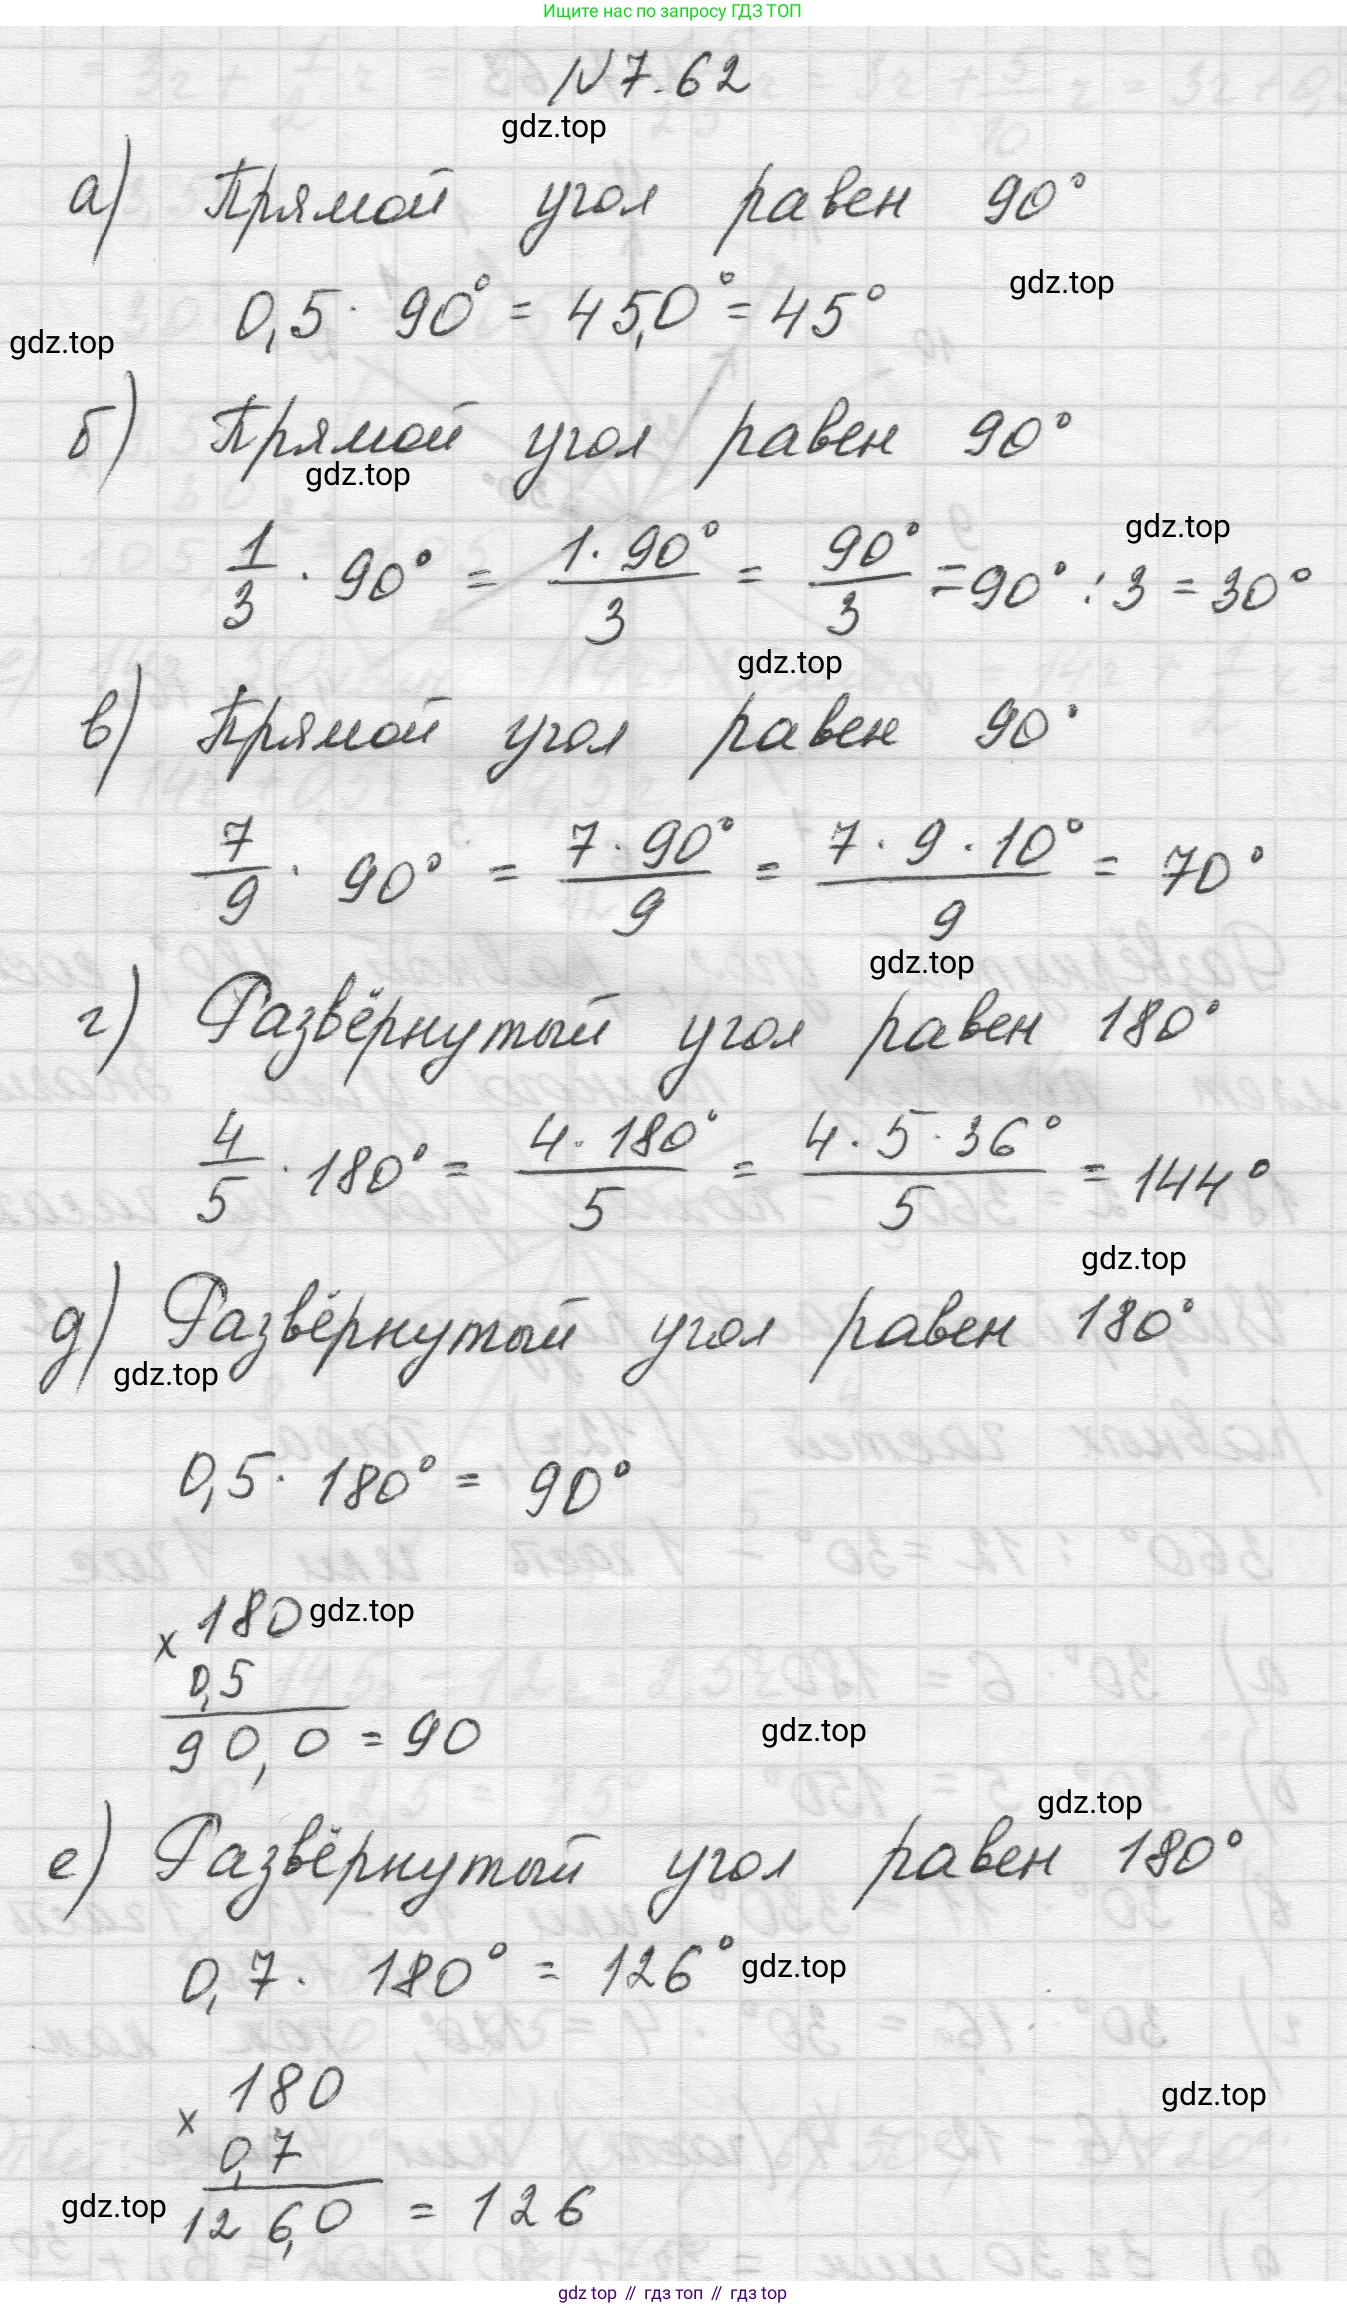 Ищите нас по запросу ГДЗ ТОП
№7.62
gdz.top
а) Прямой угол равен 90°
gdz.top
0,5 · 90° = 45,0° = 45°
gdz.top
б) Прямой угол равен 90°
gdz.top
gdz.top
1/3 · 90° = 1·90°/3 = 90°/3 = 90° : 3 = 30°
gdz.top
в) Прямой угол равен 90°
7/9 · 90° = 7·90°/9 = 7·9·10°/9 = 70°
gdz.top
г) Развёрнутый угол равен 180°
4/5 · 180° = 4·180°/5 = 4·5·36°/5 = 144°
gdz.top
д) Развёрнутый угол равен 180°
gdz.top
0,5 · 180° = 90°
180 gdz.top
×
0,5
90,0 = 90
gdz.top
gdz.top
е) Развёрнутый угол равен 180°
0,7 · 180° = 126° gdz.top
180
gdz.top
×
0,7
gdz.top
126,0 = 126
gdz top // гдз топ // гдз top